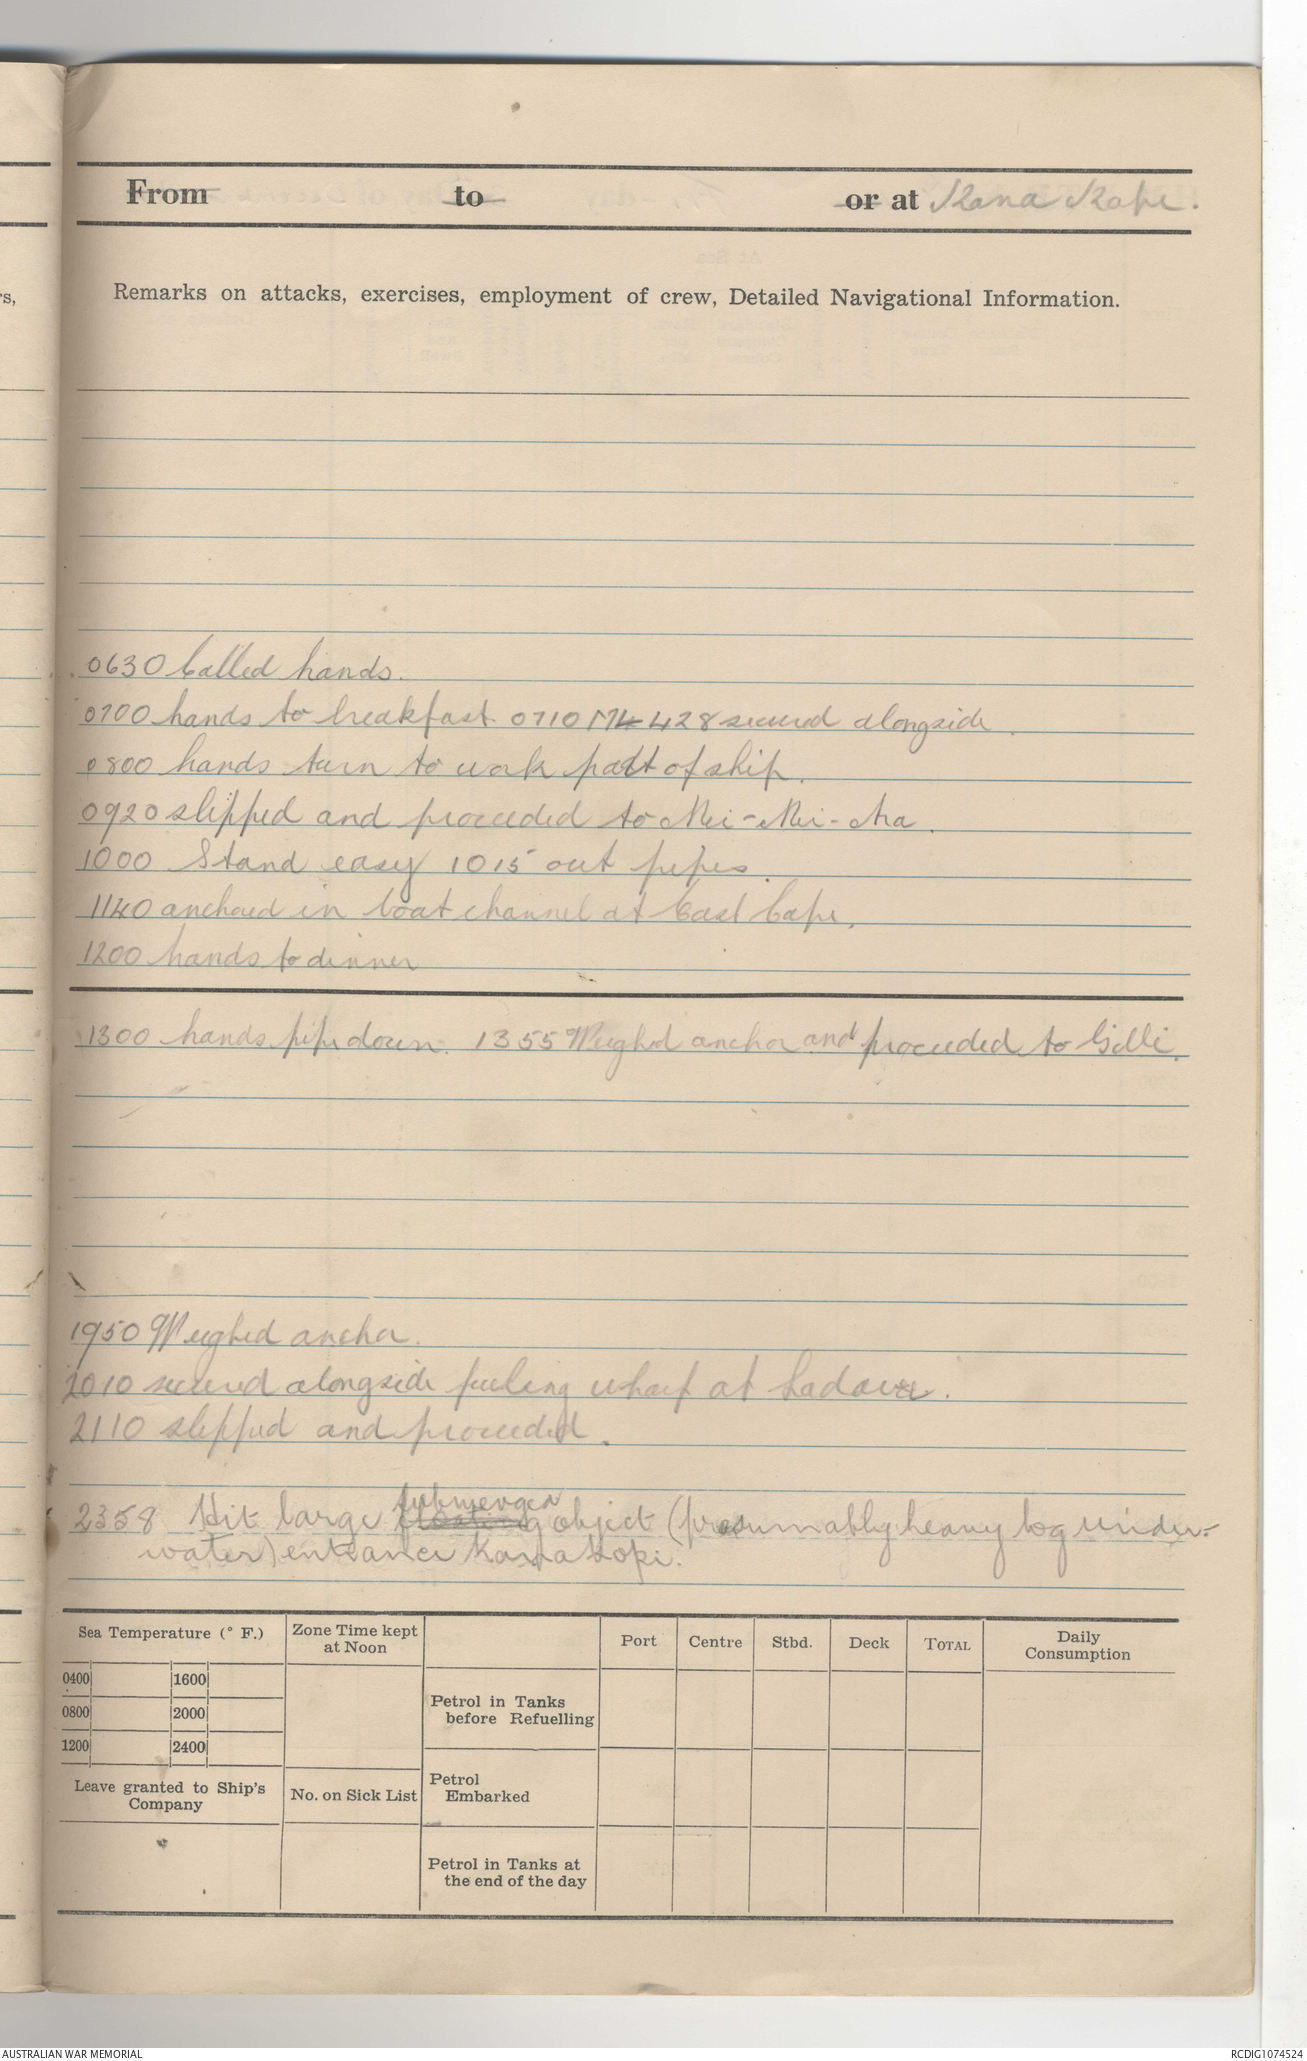 From to or at Kana Kope.
s,
Remarks on attacks, exercises, employment of crew, Detailed Navigational Information.
0630 Called hands.
0700 hands to breakfast. 0710 428 secured alongside.
0800 hands turn to work part of ship.
0920 slipped and proceeded to Mei-Mei-Ara.
1000 Stand easy 1015 out pipes.
1140 anchored in boat channel at East Cape.
1200 hands to dinner
1300 hands pipe down. 1355 Weighed anchor and proceeded to Gilli.
1950 Weighed anchor.
2010 secured alongside fueling wharf at Ladava.
2110 slipped and proceeded.
submerged
2358 Hit large floating object (presumably heavy log under-
water) entrance Kana Kopi.
Sea Temperature (° F.) Zone Time kept at Noon Port Centre Stbd. Deck TOTAL Daily Consumption
0400 1600
0800 2000
1200 2400
Petrol in Tanks before Refuelling
Leave granted to Ship's Company No. on Sick List Petrol Embarked
Petrol in Tanks at the end of the day
AUSTRALIAN WAR MEMORIAL RCDIG1074524